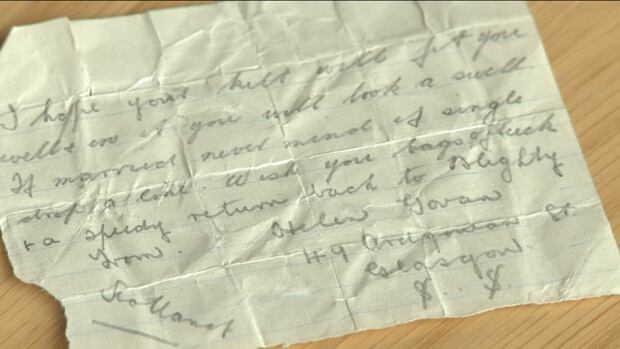 I hope your kilt will fit you
well & in it you will look a swell.
If married never mind if single
drop a line. Wish you bags of luck
& a speedy return back to Blighty
from. Helen Govan
49 Ardgowan St
Glasgow.
Scotland X . X.